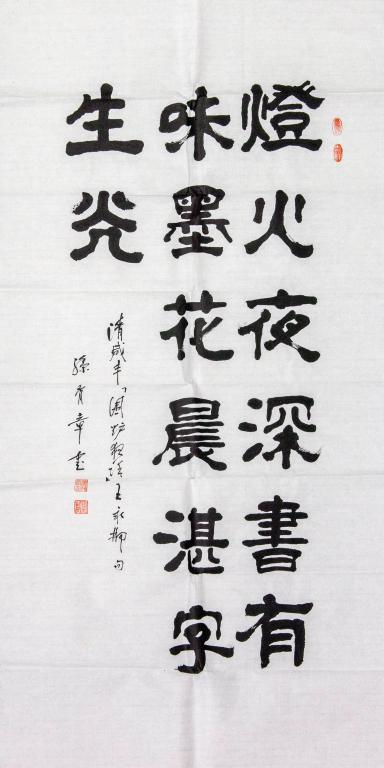 燈火夜深書有
味墨花晨湛字
生光
清咸丰「围炉夜话」王永彬句
孫有章書